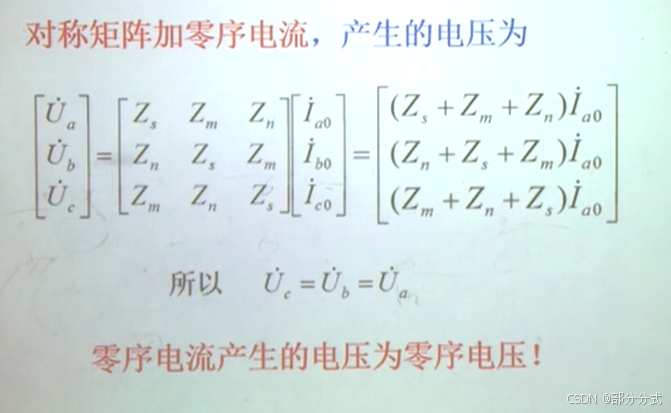 对称矩阵加零序电流，产生的电压为
[U̇a; U̇b; U̇c] = [Zs Zm Zn; Zn Zs Zm; Zm Zn Zs][İa0; İb0; İc0] = [(Zs+Zm+Zn)İa0; (Zn+Zs+Zm)İa0; (Zm+Zn+Zs)İa0]
所以 U̇c=U̇b=U̇a
零序电流产生的电压为零序电压！
CSDN @部分分式